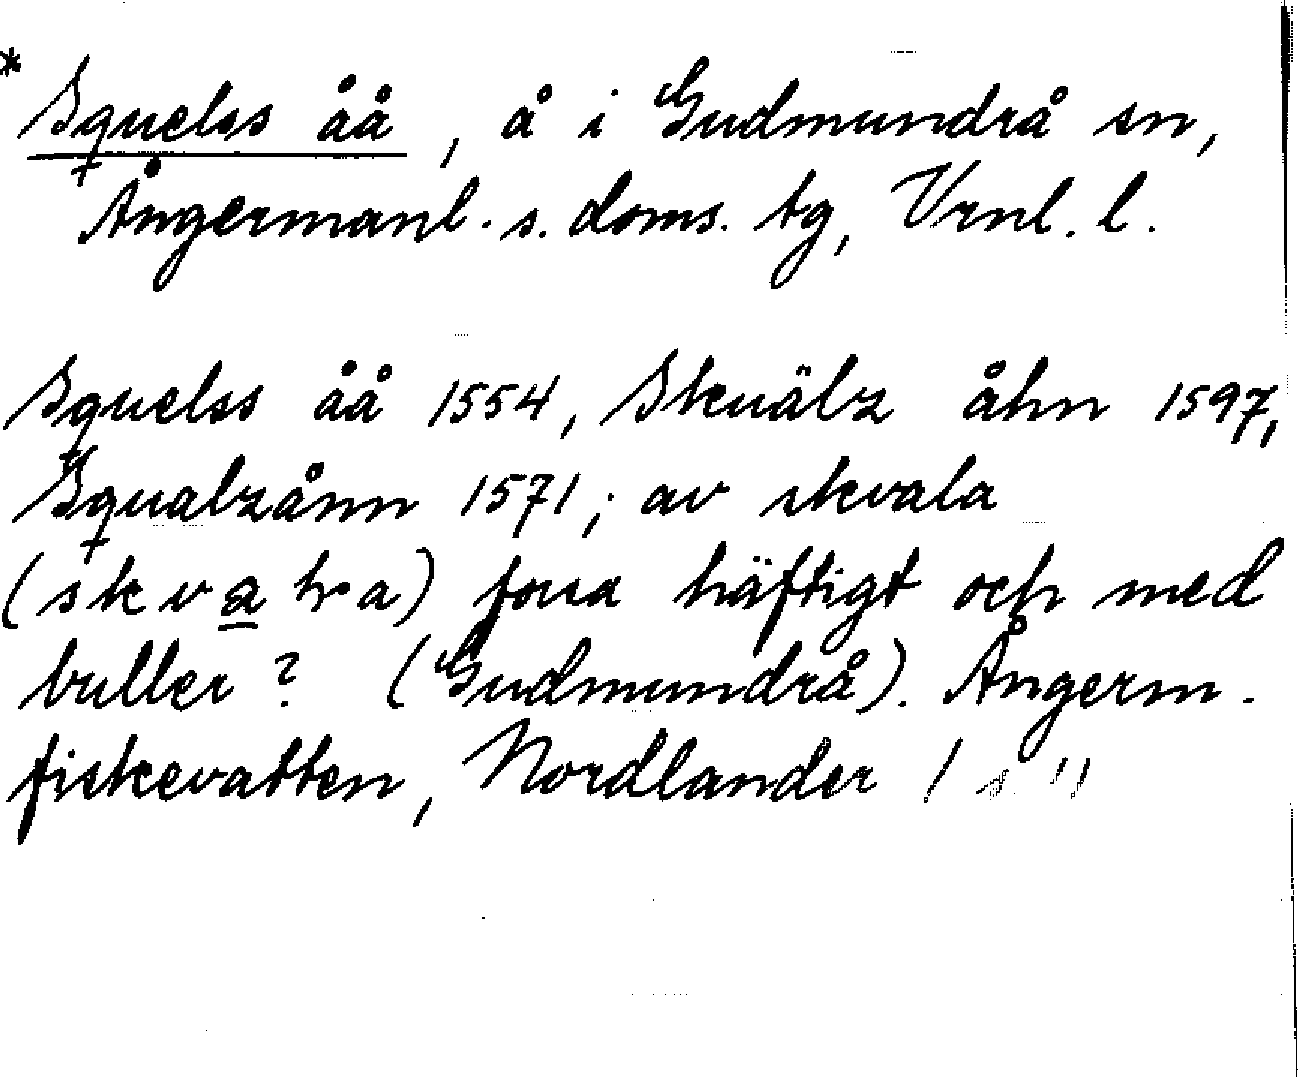 * Squelss åå, å i Gudmundrå sn,
Ångermanl. s. doms. tg, Vrnl. l.
Squelss åå 1554, Skuälz åhn 1597,
Squalzånn 1571; av skvala
(skvaƚra) forsa häftigt och med
buller? (Gudmundrå). Ångerm.
fiskevatten, Nordlander